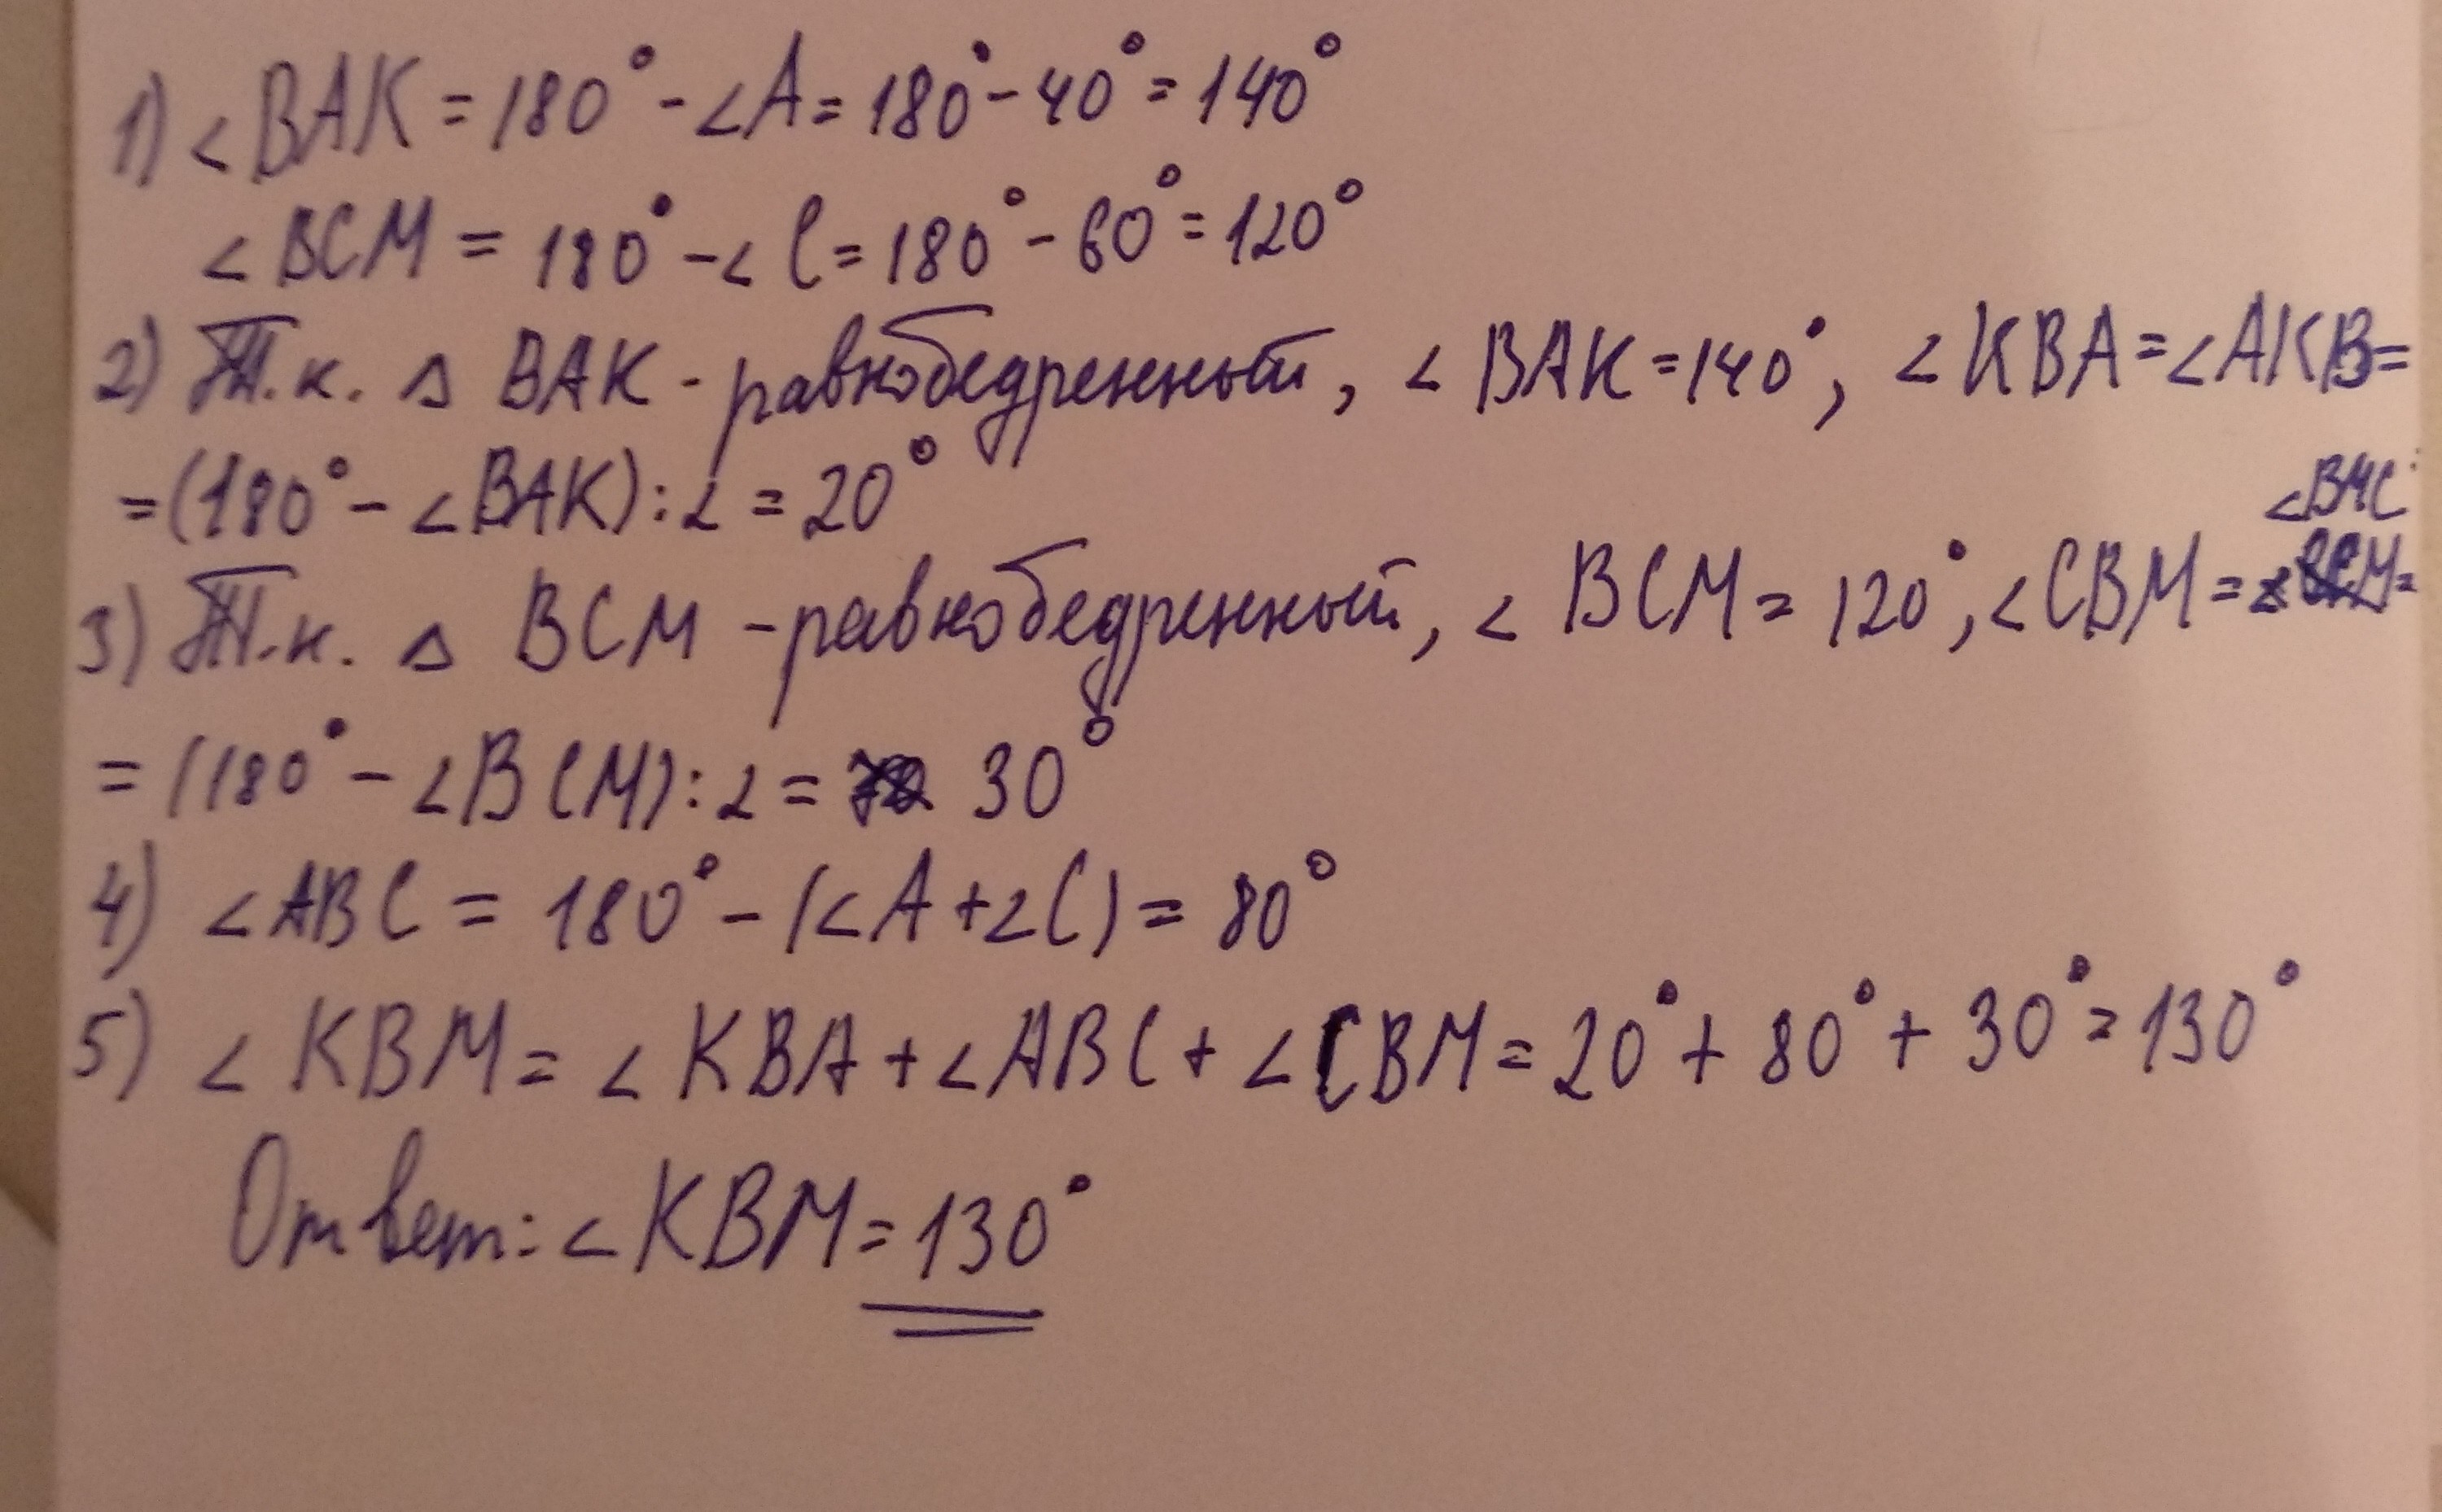 1) ∠BAK = 180° - ∠A = 180° - 40° = 140°
∠BCM = 180° - ∠C = 180° - 60° = 120°
2) Т.к. △ BAK - равнобедренный, ∠BAK = 140°, ∠KBA = ∠AKB =
= (180° - ∠BAK) : 2 = 20°
∠BMC
3) Т.к. △ BCM - равнобедренный, ∠BCM = 120°, ∠CBM = =
= (180° - ∠BCM) : 2 = 30°
4) ∠ABC = 180° - (∠A + ∠C) = 80°
5) ∠KBM = ∠KBA + ∠ABC + ∠CBM = 20° + 80° + 30° = 130°
Ответ: ∠KBM = 130°